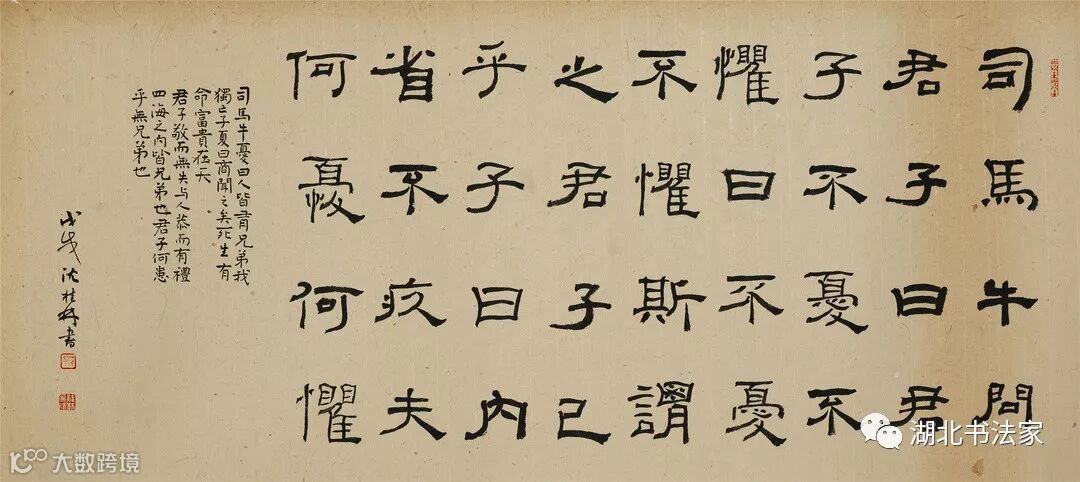 司馬牛問
君子曰君
子不憂不
懼曰不憂
不懼斯謂
之君子已
乎子曰內
省不疚夫
何憂何懼
司馬牛憂曰人皆有兄弟我
獨亡子夏曰商聞之矣死生有
命富貴在天
君子敬而無失与人恭而有禮
四海之內皆兄弟也君子何患
乎無兄弟也
戊戌沈桂書
湖北书法家
大数跨境